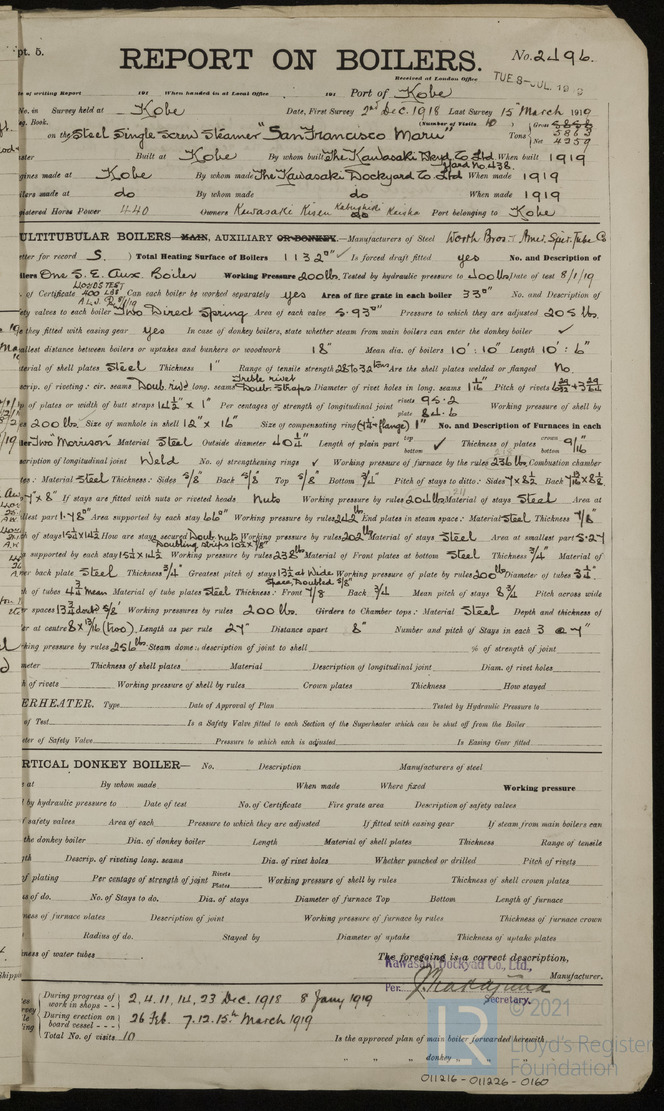 pt. 5.
REPORT ON BOILERS.
No. 2496.
Received at London Office TUE. 8-JUL. 19
of writing Report 191 When handed in at Local Office 191 Port of Kobe
No. in Survey held at Kobe Date, First Survey 2nd Dec. 1918 Last Survey 15th March 1919
Book. (Number of Visits 10)
on the Steel Single Screw Steamer "San Francisco Maru" Tons Gross 5868 Net 4259
Built at Kobe By whom built The Kawasaki Dkyd Co Ltd Yard No. 438. When built 1919
gines made at Kobe By whom made The Kawasaki Dockyard Co. Ltd When made 1919
lers made at do By whom made do When made 1919
gistered Horse Power 440 Owners Kawasaki Kisen Kabushiki Kaisha Port belonging to Kobe
ULTITUBULAR BOILERS MAIN, AUXILIARY OR DONKEY.—Manufacturers of Steel Worth Bros. & Amer. Spir. Tube Co
tter for record S. Total Heating Surface of Boilers 1132 Is forced draft fitted yes No. and Description of
ilers One S. E. Aux. Boiler Working Pressure 200 lbs. Tested by hydraulic pressure to 400 lbs Date of test 8/1/19
LLOYDS TEST 400 LBS
of Certificate Can each boiler be worked separately yes Area of fire grate in each boiler 33 No. and Description of
ety valves to each boiler Two Direct Spring Area of each valve 5.93" Pressure to which they are adjusted 205 lbs.
they fitted with easing gear yes In case of donkey boilers, state whether steam from main boilers can enter the donkey boiler ✓
allest distance between boilers or uptakes and bunkers or woodwork 18" Mean dia. of boilers 10':10" Length 10':6"
terial of shell plates Steel Thickness 1" Range of tensile strength 28 to 32 tons Are the shell plates welded or flanged No.
scrip. of riveting: cir. seams Doub. rivd long. seams Treble rivet Doub. Straps Diameter of rivet holes in long. seams 1 1/16" Pitch of rivets
p of plates or width of butt straps 14 1/2" x 1" Per centages of strength of longitudinal joint rivets 95.2 plate 84.6 Working pressure of shell by
es 200 lbs. Size of manhole in shell 12" x 16" Size of compensating ring (4 1/4 flange) 1" No. and Description of Furnaces in each
ler Two "Morison" Material Steel Outside diameter 40 1/4" Length of plain part top bottom ✓ Thickness of plates crown bottom 9/16"
scription of longitudinal joint Weld No. of strengthening rings ✓ Working pressure of furnace by the rules 236 lbs. Combustion chamber
tes: Material Steel Thickness: Sides 5/8" Back 5/8" Top 5/8" Bottom 3/4" Pitch of stays to ditto: Sides 7" x 8 1/2 Back
7" x 8" If stays are fitted with nuts or riveted heads Nuts Working pressure by rules 204 lbs Material of stays Steel Area at
llest part 1.48" Area supported by each stay 66" Working pressure by rules 242 lbs End plates in steam space: Material Steel Thickness 7/8"
h of stays 15 1/4 x 14 1/2 How are stays secured Doub nuts Working pressure by rules 202 lbs Material of stays Steel Area at smallest part 5.27
supported by each stay 15 1/4 x 14 1/2 Working pressure by rules 238 lbs Material of Front plates at bottom Steel Thickness 3/4" Material of
er back plate Steel Thickness 3/4" Greatest pitch of stays 13 1/2 at Wide Space, Doubled 5/8" Working pressure of plate by rules 200 lbs Diameter of tubes 3 1/4".
h of tubes 4 3/4 Mean Material of tube plates Steel Thickness: Front 7/8 Back 3/4 Mean pitch of stays 8 3/4 Pitch across wide
er spaces 13 3/4 doubd 5/8" Working pressures by rules 200 lbs. Girders to Chamber tops: Material Steel Depth and thickness of
er at centre 8 x 13/16 (two). Length as per rule 27" Distance apart 8" Number and pitch of Stays in each 3 @ 7"
king pressure by rules 256 lbs. Steam dome: description of joint to shell % of strength of joint
meter Thickness of shell plates Material Description of longitudinal joint Diam. of rivet holes
h of rivets Working pressure of shell by rules Crown plates Thickness How stayed
ERHEATER. Type Date of Approval of Plan Tested by Hydraulic Pressure to
of Test Is a Safety Valve fitted to each Section of the Superheater which can be shut off from the Boiler
ter of Safety Valve Pressure to which each is adjusted Is Easing Gear fitted
RTICAL DONKEY BOILER— No. Description Manufacturers of steel
at By whom made When made Where fixed Working pressure
by hydraulic pressure to Date of test No. of Certificate Fire grate area Description of safety valves
safety valves Area of each Pressure to which they are adjusted If fitted with easing gear If steam from main boilers can
the donkey boiler Dia. of donkey boiler Length Material of shell plates Thickness Range of tensile
gth Descrip. of riveting long. seams Dia. of rivet holes Whether punched or drilled Pitch of rivets
of plating Per centage of strength of joint Rivets Plates Working pressure of shell by rules Thickness of shell crown plates
s of do. No. of Stays to do. Dia. of stays Diameter of furnace Top Bottom Length of furnace
ness of furnace plates Description of joint Working pressure of furnace by rules Thickness of furnace crown
Radius of do. Stayed by Diameter of uptake Thickness of uptake plates
ness of water tubes The foregoing is a correct description,
Kawasaki Dockyard Co., Ltd., Manufacturer.
Per. Secretary.
During progress of work in shops - - 2. 4. 11. 14. 23 Dec. 1918 8 Jany 1919
During erection on board vessel - - - 26 Feb. 7. 12. 15th March 1919
Total No. of visits 10 Is the approved plan of main boiler forwarded herewith
" " " donkey " " "
© 2021
LR
Lloyd's Register
Foundation
011216-011226-0160